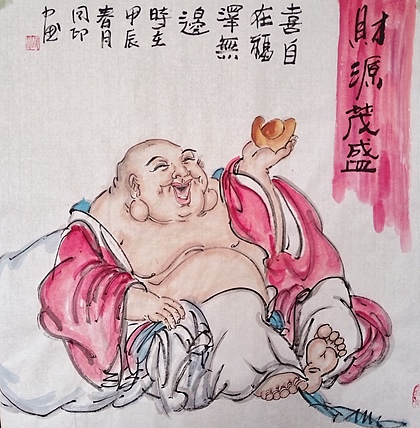 財源茂盛
喜自
在福
澤無
邊
時在
甲辰
春月